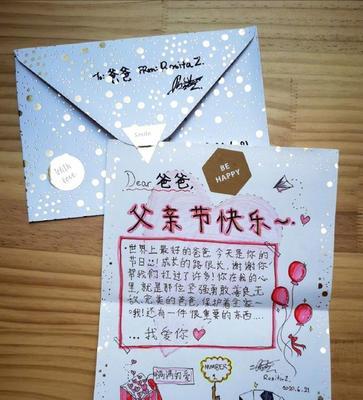 To: 爸爸 From: Rosita Z.
Smile
With
Love
BE
HAPPY
Dear 爸爸,
父亲节快乐~
世界上最好的爸爸今天是你的
节日!!成长的路很长,谢谢你
帮我们扛过了许多!你在我的心
里,就是那位坚强勇敢善良无
敌,完美的爸爸,保护着全家~
我!还有一件很重要的东西....
...我爱你♡
满满的爱
NUMBER
Rosita Z.
2020.6.21